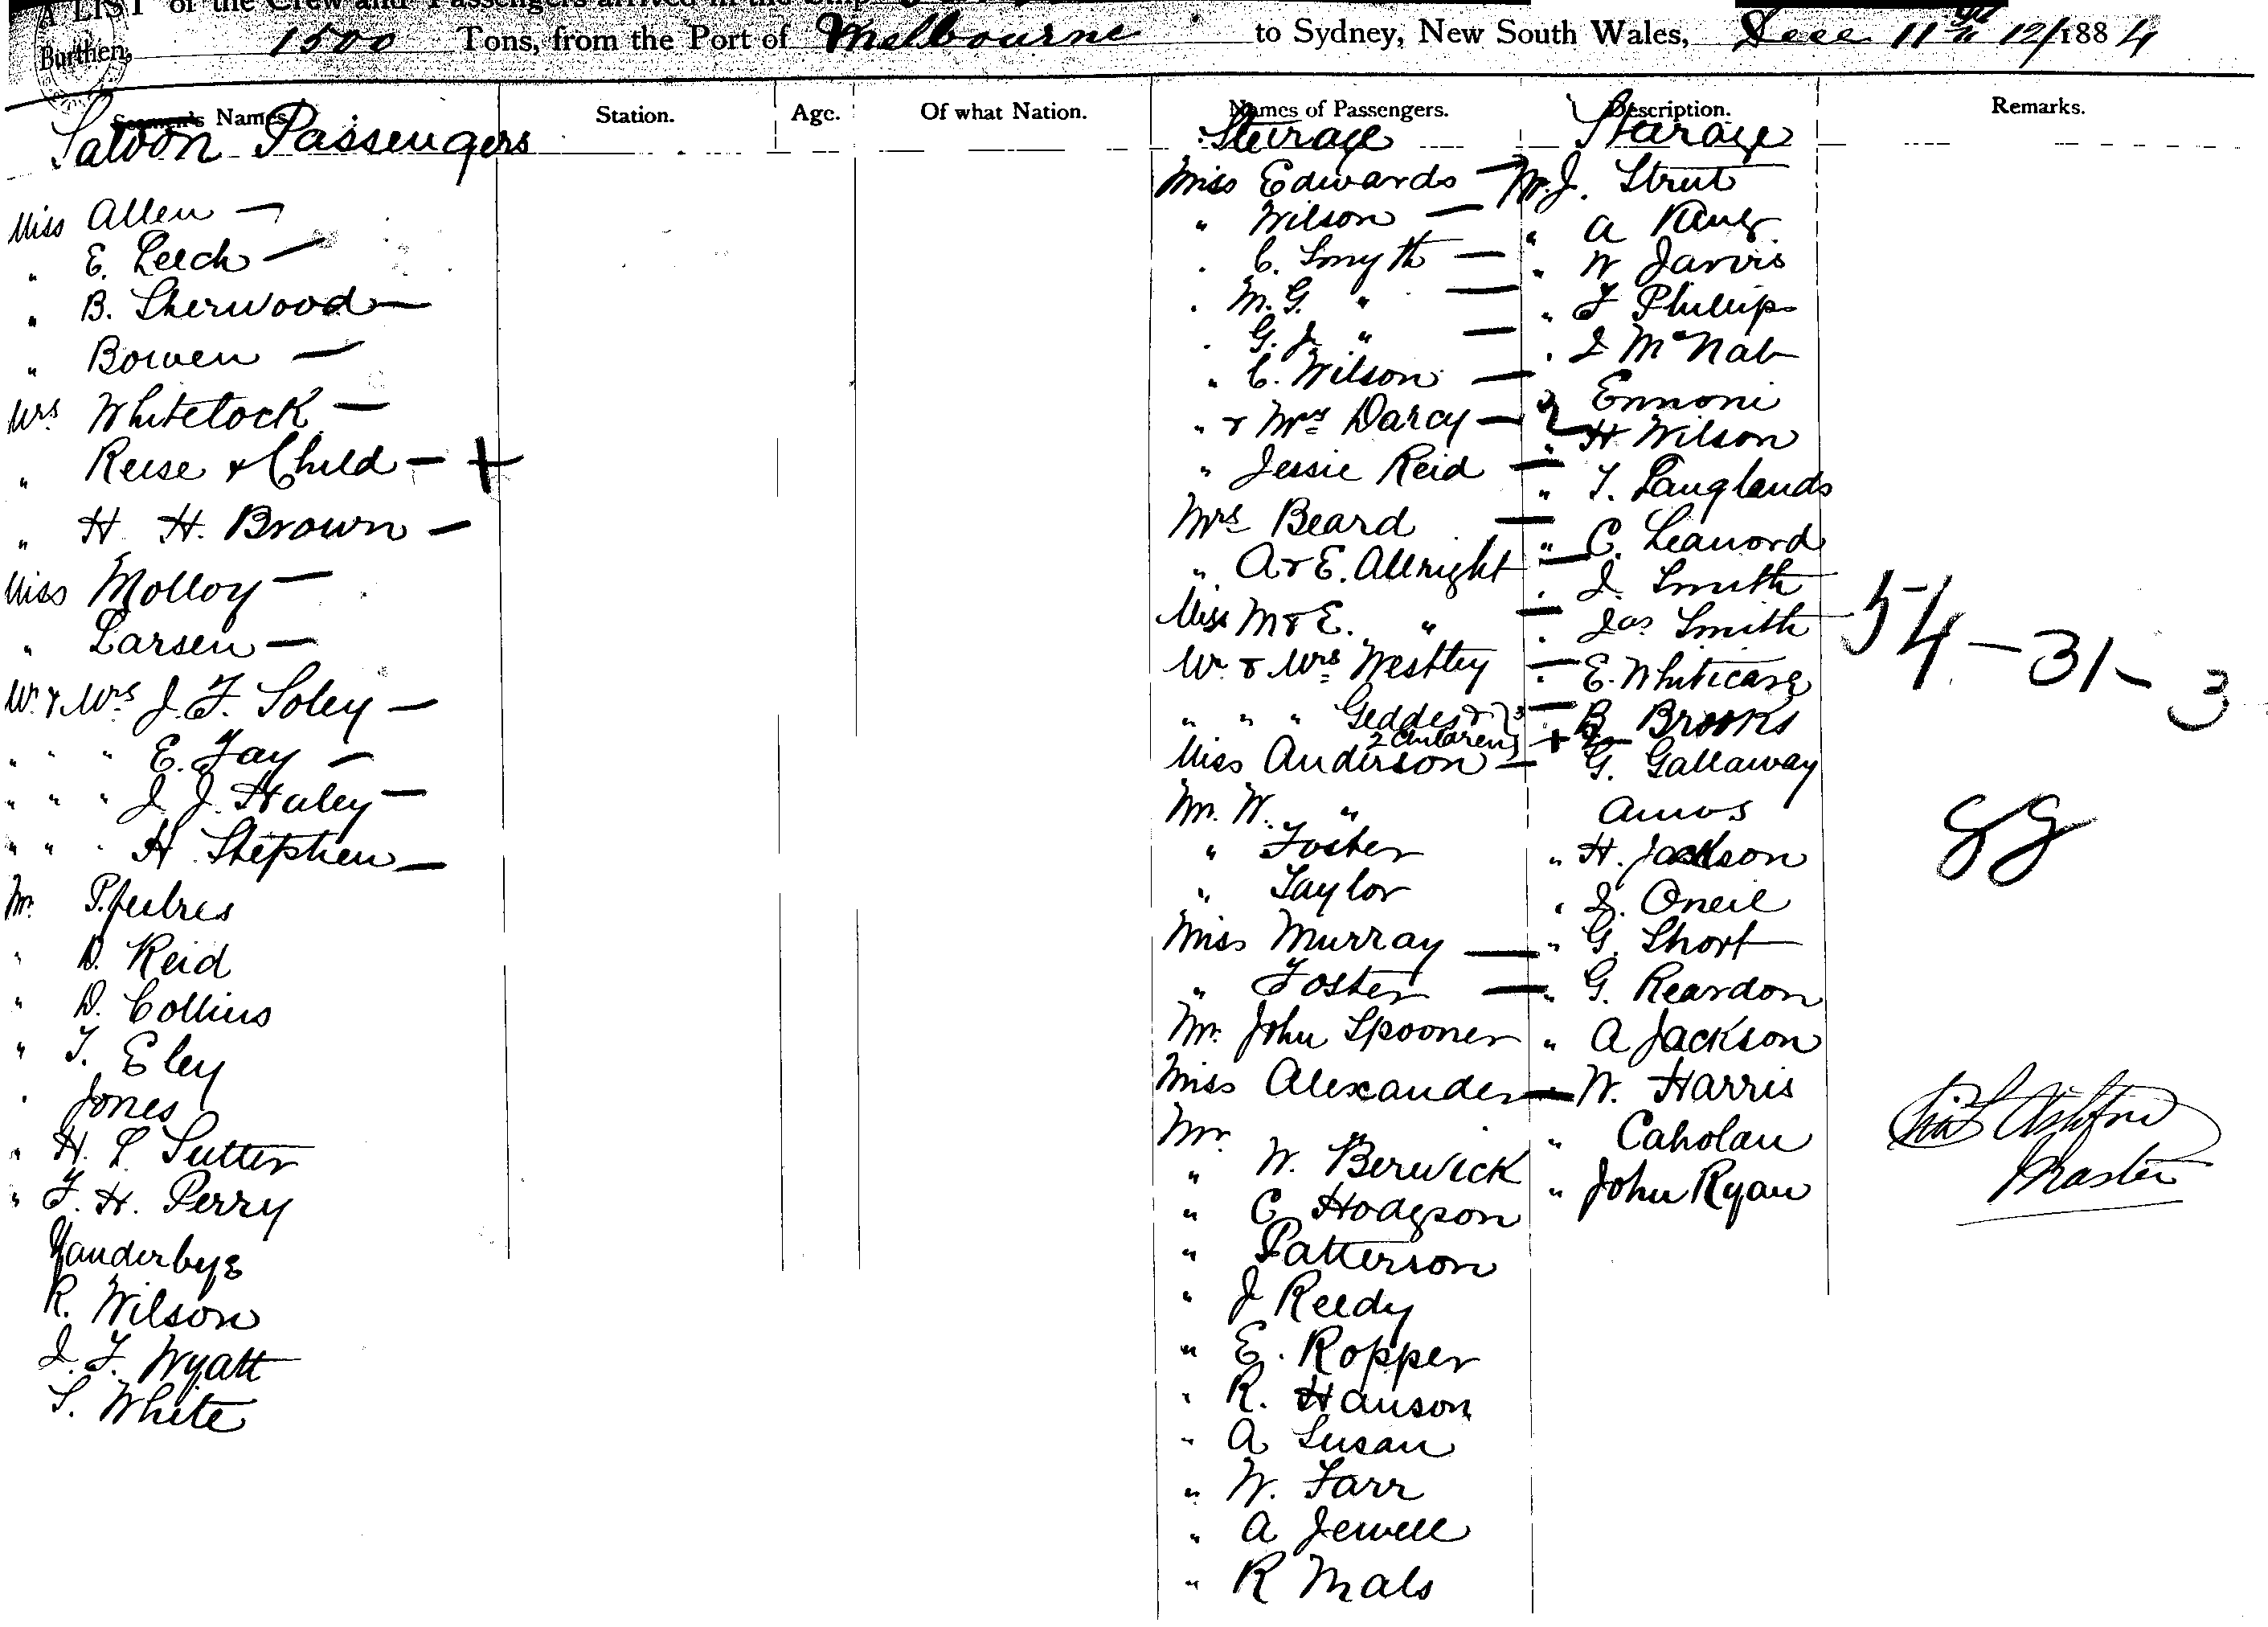 A LIST of the Crew and Passengers arrived in the Ship
Burthen, 1500 Tons, from the Port of Melbourne to Sydney, New South Wales, Dece 11th 12/1884
Seamen's Names. Station. Age. Of what Nation. Names of Passengers. Description. Remarks.
Saloon Passengers
Miss Allen —
" E. Leech —
" B. Sherwood —
" Bowen —
Mrs Whitelock —
" Reise & Child — +
" H. H. Brown —
Miss Molloy —
" Larsen —
Mr & Mrs J. F. Soley —
" " " E. Fay —
" " " J. J. Haley —
" " " H. Stephen —
Mr. P.
" D. Reid
" D. Collins
" T. Eley
" Jones
" H. L. Sutter
" F. H. Perry
Vanderbye
R. Wilson
J. F. Wyatt
S. White
Steerage
Miss Edwards —
" Wilson —
" C. Smyth —
" M. G. " —
" G. J. " —
" C. Wilson —
" & Mrs Darcy — 2
" Jessie Reid —
Mrs Beard —
" A & E. Allright —
Miss M & E. " —
Mr. & Mrs Westley —
" " " Geddes & } 3 —
2 Children +
Miss Anderson —
Mr. W. "
" Foster
" Taylor
Miss Murray —
" Foster —
Mr. John Spooner
Miss Alexander —
Mr. "
" W. Berwick
" C Hodgson
" Patterson
" J Reedy
" E. Ropper
" R. Hanson
" A Susan
" W. Farr
" A Jewell
" R Mals
Steerage
Mr. J. Strut
" A
" W Jarvis
" F Phillips
" J McNab
Ennoni
" H Wilson
" T. Langlands
" C. Leanord
" J. Smith
" Jas Smith
" E. Whiticase
" B Brooks
G. Gallaway
Amos
" H. Jackson
" J. Oneil
" G. Short
" G. Reardon
" A Jackson
" W. Harris
" Caholan
" John Ryan
54 – 31 – 3
88
Ashford
Master